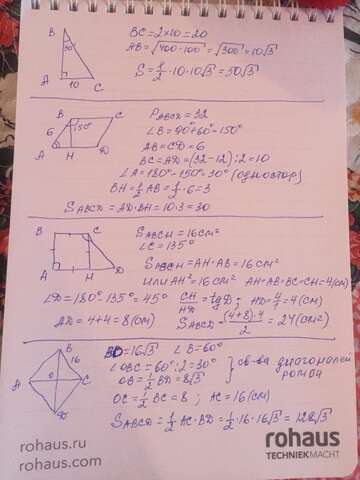 B
30°
A
10
C
BC = 2×10 = 20
AB = √400-100 = √300 = 10√3
S = 1/2 · 10 · 10√3 = 50√3
B
C
6
150°
A
H
D
P ABCD = 32
∠B = 90° + 60° = 150°
AB = CD = 6
BC = AD = (32-12):2 = 10
∠A = 180° - 150° = 30° (одностор)
BH = 1/2 AB = 1/2 · 6 = 3
S ABCD = AD · BH = 10 · 3 = 30
B
C
A
H
D
S ABCH = 16 см²
∠C = 135°
S ABCH = AH · AB = 16 см²
или AH² = 16 см² AH = AB = BC = CH = 4 (см)
∠D = 180° - 135° = 45° CH/HD = tg D; HD = 4/1 = 4 (см)
AD = 4+4 = 8 (см) S ABCD = (4+8)·4/2 = 24 (см²)
B
16
A
O
C
D
BD = 16√3 ∠B = 60°
∠OBC = 60° : 2 = 30°
OB = 1/2 BD = 8√3
} св-ва диагоналей ромба
OC = 1/2 BC = 8 ; AC = 16 (см)
S ABCD = 1/2 AC · BD = 1/2 · 16 · 16√3 = 128√3
rohaus.ru
rohaus.com
rohaus
TECHNIEKMACHT